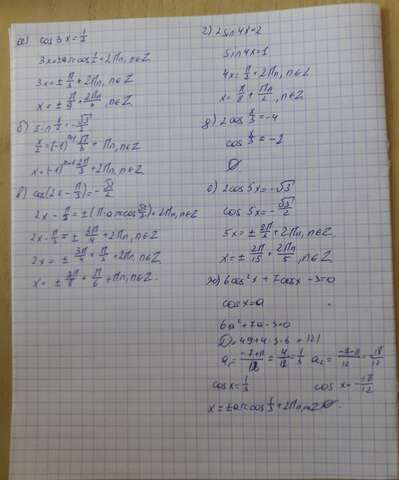 а) cos3x=1/2
3x=±arccos 1/2+2Πn, n∈Z
3x=± Π/3+2Πn, n∈Z
x=± Π/9+2Πn/3, n∈Z
б) sin x/2=-√3/2
x/2=(-1)ⁿ⁺¹ Π/3+Πn, n∈Z
x=(-1)ⁿ⁺¹ 2Π/3+2Πn, n∈Z
в) cos(2x-Π/3)=-√2/2
2x-Π/3=±(Π-arccos √2/2)+2Πn, n∈Z
2x-Π/3=± 3Π/4+2Πn, n∈Z
2x=± 3Π/4+Π/3+2Πn, n∈Z
x=± 3Π/8+Π/6+Πn, n∈Z.
г) 2sin4x=2
sin4x=1
4x=Π/2+2Πn, n∈Z
x=Π/8+Πn/2, n∈Z
д) 2cos x/3=-4
cos x/3=-2
∅
е) 2cos5x=-√3
cos5x=-√3/2
x=± 2Πn/5, n∈Z
ж) 6cos²x+7cosx-3=0
cosx=a
6a²+7a-3=0
D=49+4·3·6=121
a₁=-7+11/12=4/12=1/3 a₂=-7-11/12=-18/12
cosx=1/3 cosx=-18/12
x=±arccos 1/3+2Πn, n∈Z ∅.